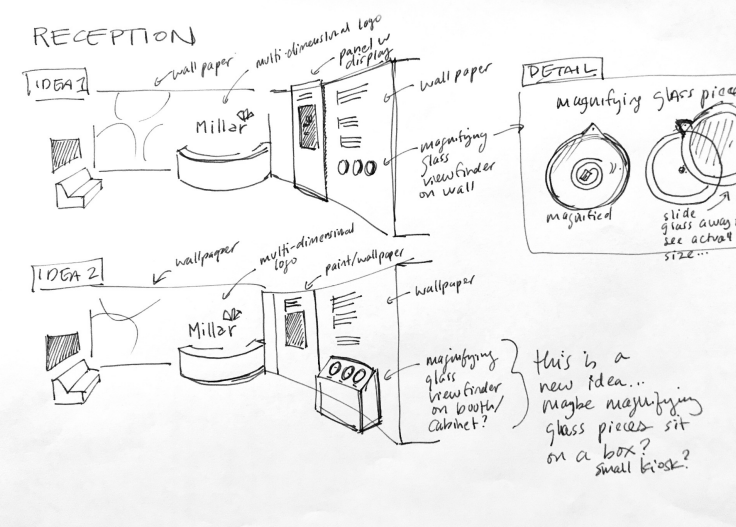 RECEPTION
IDEA 1
wallpaper
multi-dimensional logo
panel w
display
wallpaper
Millar
magnifying
glass
viewfinder
on wall
DETAIL
magnifying glass pieces
magnified
slide
glass away
see actual
size...
IDEA 2
wallpaper
multi-dimensional
logo
paint/wallpaper
wallpaper
Millar
magnifying
glass
viewfinder
on booth/
cabinet?
this is a
new idea...
maybe magnifying
glass pieces sit
on a box?
small kiosk?